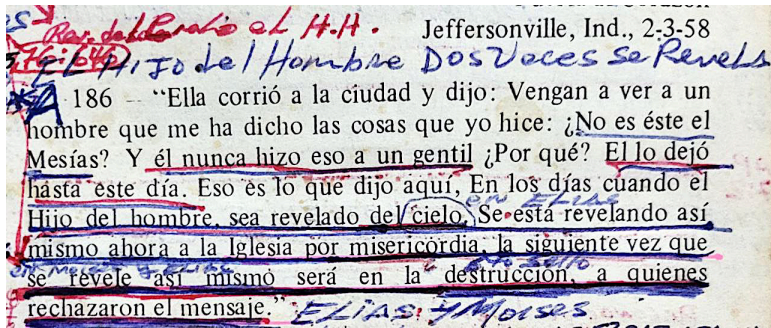 Jeffersonville, Ind., 2-3-58
El Hijo del Hombre Dos Veces Se Revela
186 – “Ella corrió a la ciudad y dijo: Vengan a ver a un
hombre que me ha dicho las cosas que yo hice: ¿No es éste el
Mesías? Y él nunca hizo eso a un gentil ¿Por qué? El lo dejó
hasta este día. Eso es lo que dijo aquí, En los días cuando el
en ELIAS
Hijo del hombre, sea revelado del cielo. Se está revelando así
mismo ahora a la Iglesia por misericordia, la siguiente vez que
se revele así mismo será en la destrucción, a quienes
rechazaron el mensaje.” ELIAS y Moises